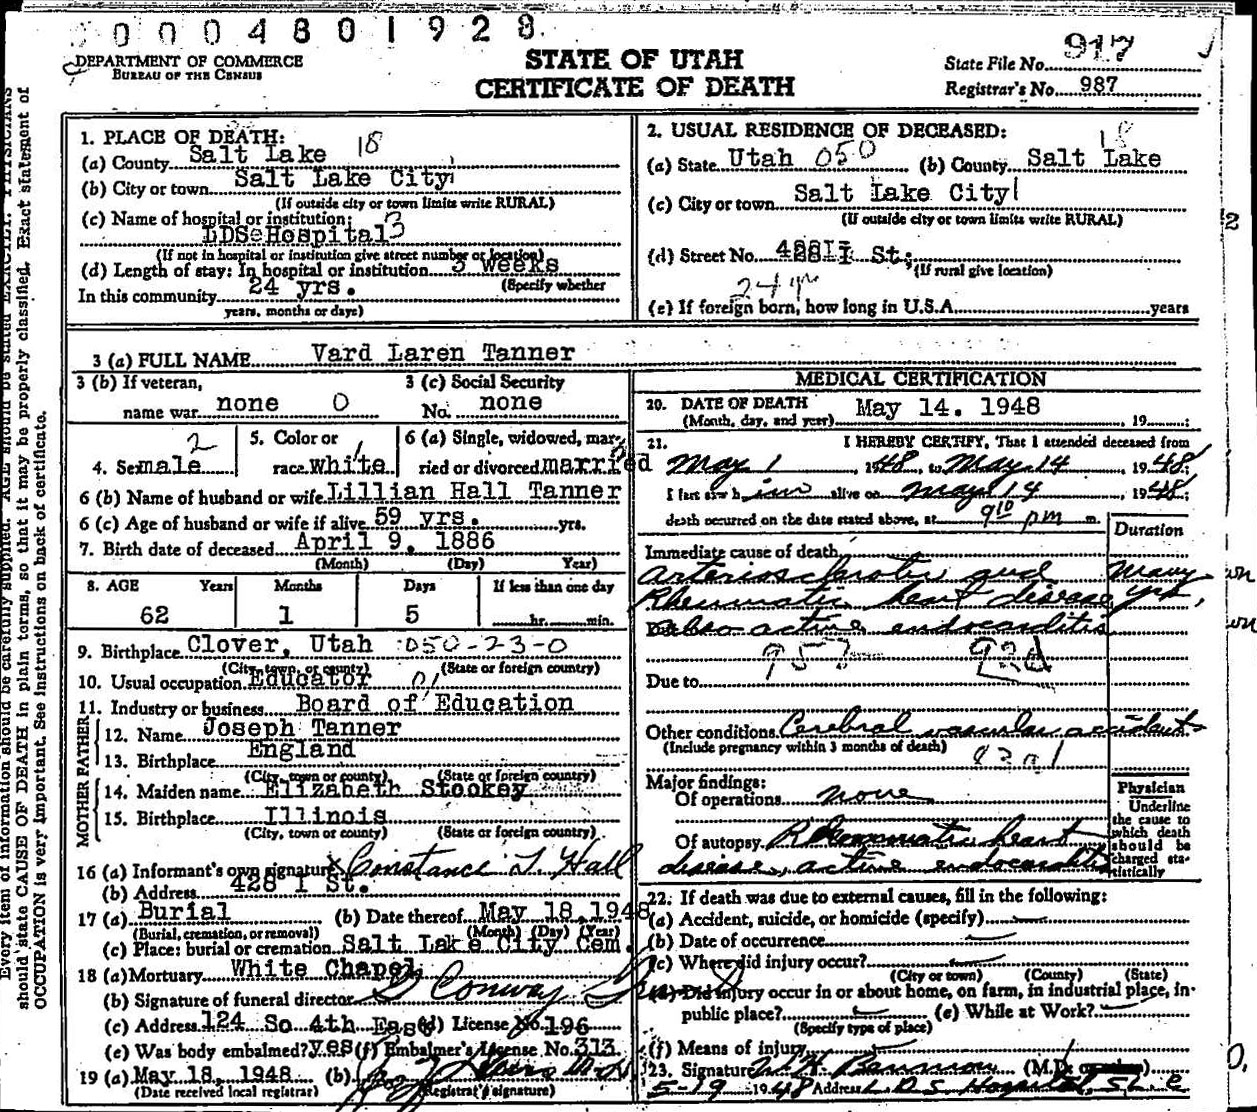 0004801928
DEPARTMENT OF COMMERCE
BUREAU OF THE CENSUS
STATE OF UTAH
CERTIFICATE OF DEATH
State File No. 917
Registrar's No. 987
1. PLACE OF DEATH:
(a) County Salt Lake 18
(b) City or town Salt Lake City
(If outside city or town limits write RURAL)
(c) Name of hospital or institution:
LDS Hospital 3
(If not in hospital or institution give street number or location)
(d) Length of stay: In hospital or institution 3 weeks
(Specify whether
In this community 24 yrs.
years, months or days)
2. USUAL RESIDENCE OF DECEASED:
18
(a) State Utah 050 (b) County Salt Lake
(c) City or town Salt Lake City
(If outside city or town limits write RURAL)
(d) Street No. St.
(If rural give location)
24 yr
(e) If foreign born, how long in U.S.A. years
3 (a) FULL NAME Vard Laren Tanner
3 (b) If veteran,
name war none 0
3 (c) Social Security
No. none
4. Sex male 2
5. Color or
race white 1
6 (a) Single, widowed, mar-
ried or divorced married
6 (b) Name of husband or wife Lillian Hall Tanner
6 (c) Age of husband or wife if alive 59 yrs. yrs.
7. Birth date of deceased April 9, 1886
(Month) (Day) Year)
8. AGE Years Months Days If less than one day
62 1 5 hr. min.
9. Birthplace Clover, Utah 050-23-0
(City, town, or county) (State or foreign country)
10. Usual occupation Educator 01
11. Industry or business Board of Education
FATHER
12. Name Joseph Tanner
13. Birthplace England
(City, town or county) (State or foreign country)
MOTHER
14. Maiden name Elizabeth Stookey
15. Birthplace Illinois
(City, town or county) (State or foreign country)
16 (a) Informant's own signature x Constance T. Hall
(b) Address 428 I St.
17 (a) Burial (b) Date thereof May 18, 1948
(Burial, cremation, or removal) (Month) (Day) (Year)
(c) Place: burial or cremation Salt Lake City Cem.
18 (a) Mortuary White Chapel
(b) Signature of funeral director Conway
(c) Address 124 So 4th East (d) License No. 196
(e) Was body embalmed? yes (f) Embalmer's License No. 313
19 (a) May 18, 1948 (b)
(Date received local registrar) (Registrar's signature)
MEDICAL CERTIFICATION
20. DATE OF DEATH May 14. 1948
(Month, day, and year) , 19
21. I HEREBY CERTIFY, That I attended deceased from
May 1, 1948, to May 14, 1948;
I last saw him alive on May 14, 1948;
death occurred on the date stated above, at 9 10 pm m.
Duration
Immediate cause of death
Arteriosclerotic and Many
Rheumatic heart disease yrs,
also active endocarditis
Due to
Other conditions Cerebral vascular accident
(Include pregnancy within 3 months of death)
Major findings:
Of operations none
Of autopsy Rheumatic heart
disease, active endocarditis
Physician
Underline
the cause to
which death
should be
charged sta-
tistically
22. If death was due to external causes, fill in the following:
(a) Accident, suicide, or homicide (specify)
(b) Date of occurrence
(c) Where did injury occur?
(City or town) (County) (State)
(d) Did injury occur in or about home, on farm, in industrial place, in
public place? (e) While at Work?
(Specify type of place)
(f) Means of injury
23. Signature (M.D.
5-19 1948 Address L.D.S. Hospital, SLC
should state CAUSE OF DEATH in plain terms, so that it may be properly classified. Exact statement of
OCCUPATION is very important. See instructions on back of certificate.